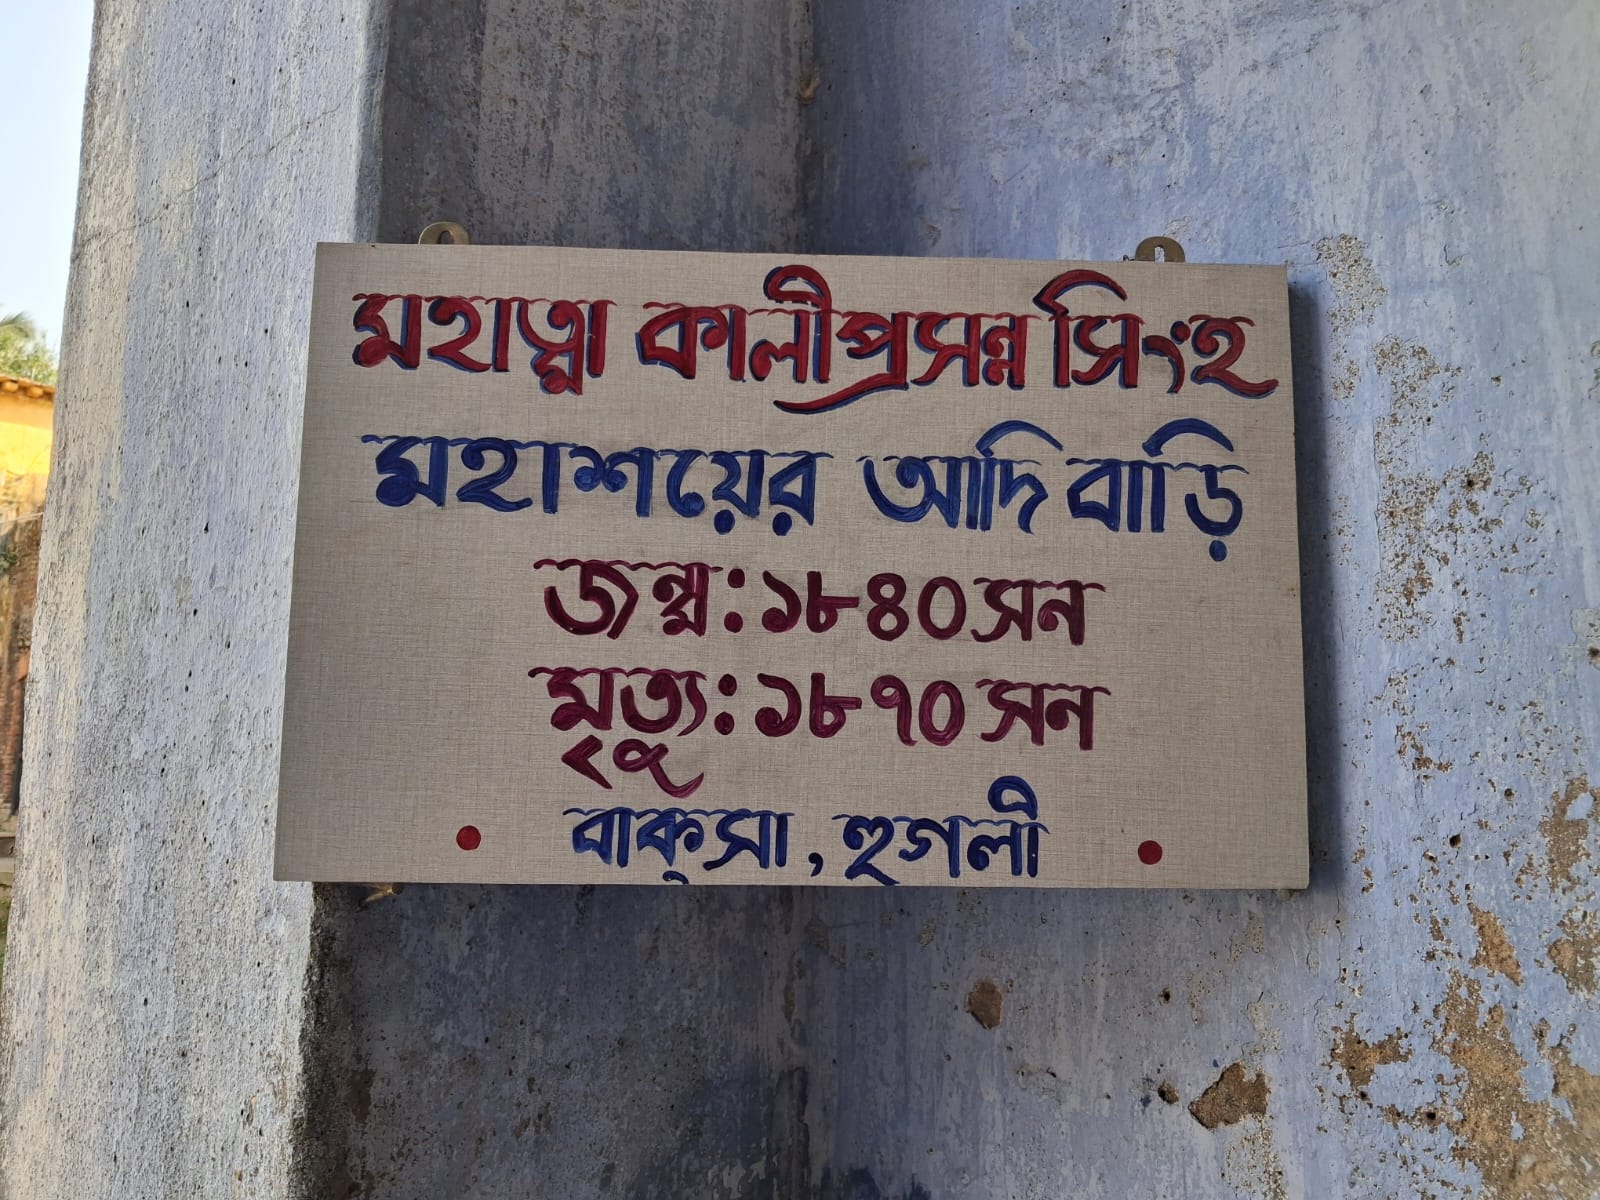 মহাত্মা কালীপ্রসন্ন সিংহ
মহাশয়ের আদি বাড়ি
জন্ম : ১৮৪০ সন
মৃত্যু : ১৮৭০ সন
বাক্‌সা, হুগলী